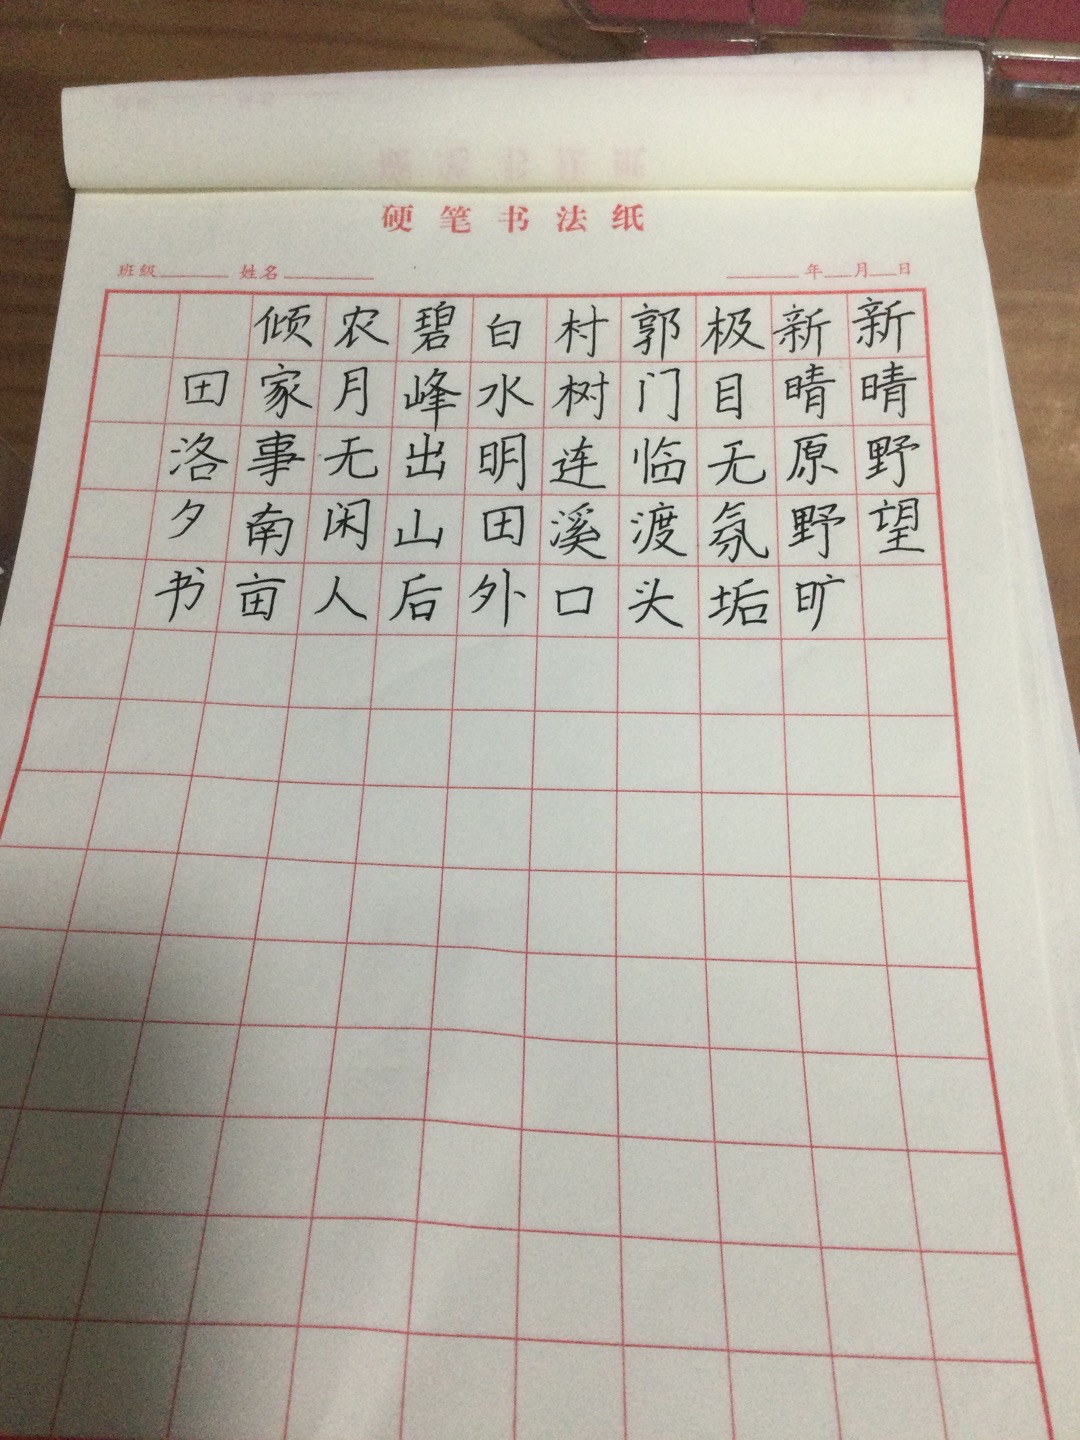 硬笔书法纸
班级 姓名 年 月 日
新晴野望
新晴原野旷
极目无氛垢
郭门临渡头
村树连溪口
白水明田外
碧峰出山后
农月无闲人
倾家事南亩
田洛夕书